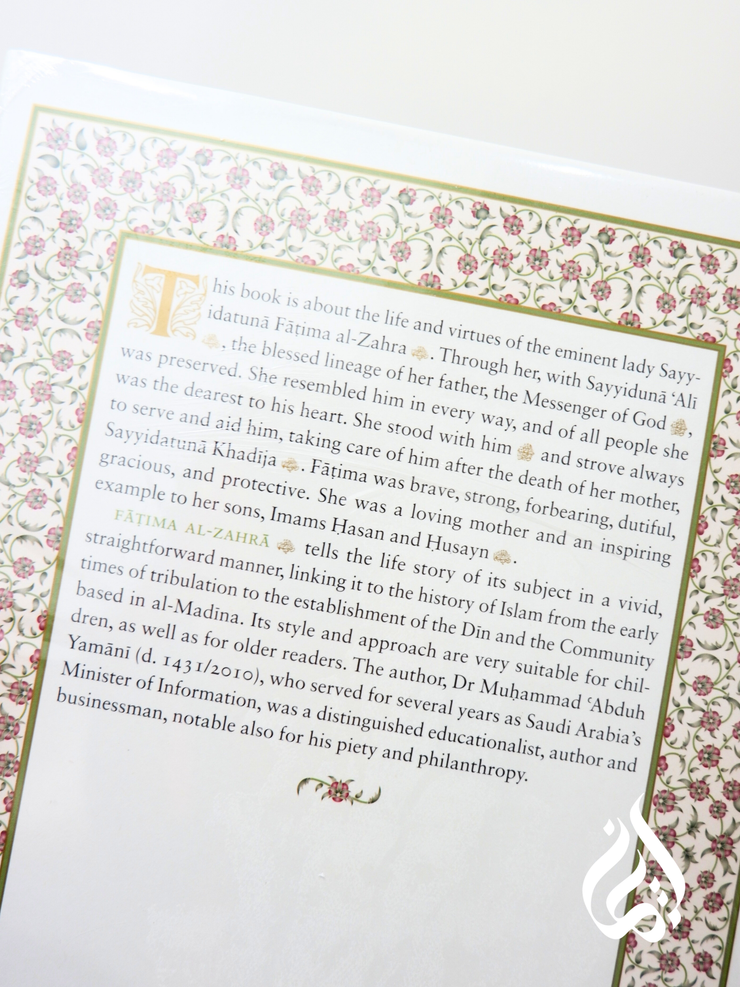 This book is about the life and virtues of the eminent lady Sayy-
idatunā Fāṭima al-Zahra. Through her, with Sayyidunā ʿAlī
, the blessed lineage of her father, the Messenger of God,
was preserved. She resembled him in every way, and of all people she
was the dearest to his heart. She stood with him and strove always
to serve and aid him, taking care of him after the death of her mother,
Sayyidatunā Khadīja. Fāṭima was brave, strong, forbearing, dutiful,
gracious, and protective. She was a loving mother and an inspiring
example to her sons, Imams Ḥasan and Ḥusayn.
FĀṬIMA AL-ZAHRĀ tells the life story of its subject in a vivid,
straightforward manner, linking it to the history of Islam from the early
times of tribulation to the establishment of the Dīn and the Community
based in al-Madīna. Its style and approach are very suitable for chil-
dren, as well as for older readers. The author, Dr Muḥammad ʿAbduh
Yamānī (d. 1431/2010), who served for several years as Saudi Arabia's
Minister of Information, was a distinguished educationalist, author and
businessman, notable also for his piety and philanthropy.